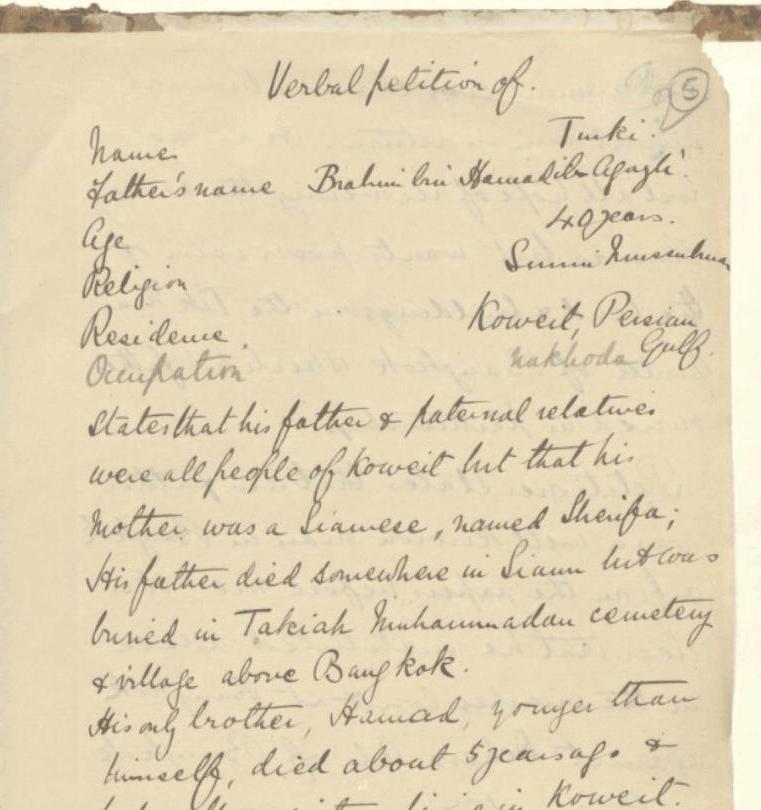 Verbal petition of.
5
Name Turki.
Father's name Brahim bin Hamad
Age 40 years.
Religion Sunni Mussulman
Residence. Koweit, Persian
Occupation nakhoda Gulf.
States that his father & paternal relatives
were all people of Koweit but that his
Mother was a Siamese, named Sherifa;
His father died somewhere in Siam but was
buried in Takiah Muhammadan cemetery
& village above Bangkok.
His only brother, Hamad, yonger than
himself, died about 5 years ago &
in Koweit.